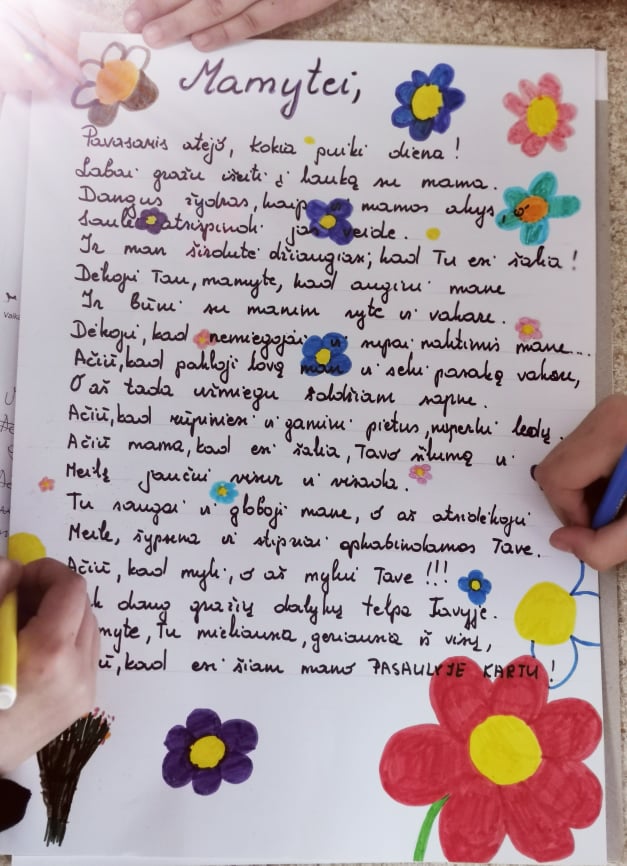 Mamytei,
Pavasaris atėjo, kokia puiki diena!
Labai gražu išeiti į lauką su mama.
Dangus žydras, kaip mamos akys,
Saulė atsispindi jos veide.
Ir man širdutė džiaugiasi, kad Tu esi šalia!
Dėkoju Tau, mamyte, kad augini mane
Ir būni su manim ryte ir vakare.
Dėkoju, kad nemiegojai ir supai naktimis mane...
Ačiū, kad pakloji lovą man ir seki pasaką vakare,
O aš tada užmiegu saldžiam sapne.
Ačiū, kad rūpiniesi ir gamini pietus, nuperki ledų.
Ačiū mama, kad esi šalia, Tavo šilumą ir
Meilę jaučiu visur ir visada.
Tu saugai ir globoji mane, o aš atsidėkoju
Meile, šypsena ir stipriai apkabindamas Tave.
Ačiū, kad myli, o aš myliu Tave!!!
daug gražių dalykų telpa Tavyje.
Tu mieliausia, geriausia iš visų,
kad esi šiam mano PASAULYJE KARTU!